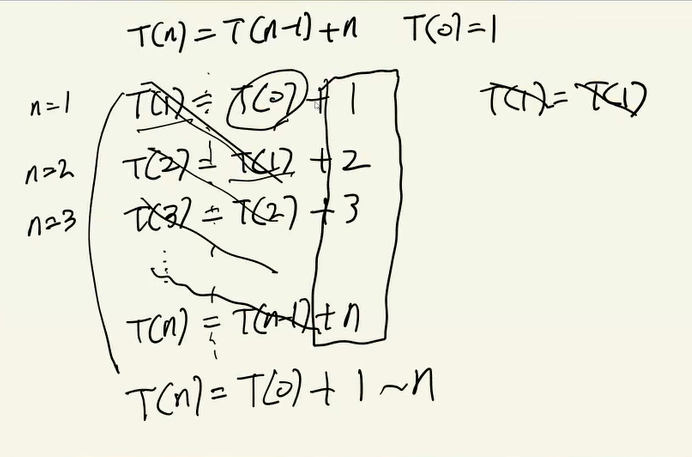 T(n) = T(n-1) + n T(0) = 1
n=1 T(1) = T(0) + 1 T(1) = T(1)
n=2 T(2) = T(1) + 2
n=3 T(3) = T(2) + 3
⋮
T(n) = T(n-1) + n
T(n) = T(0) + 1 ~ n